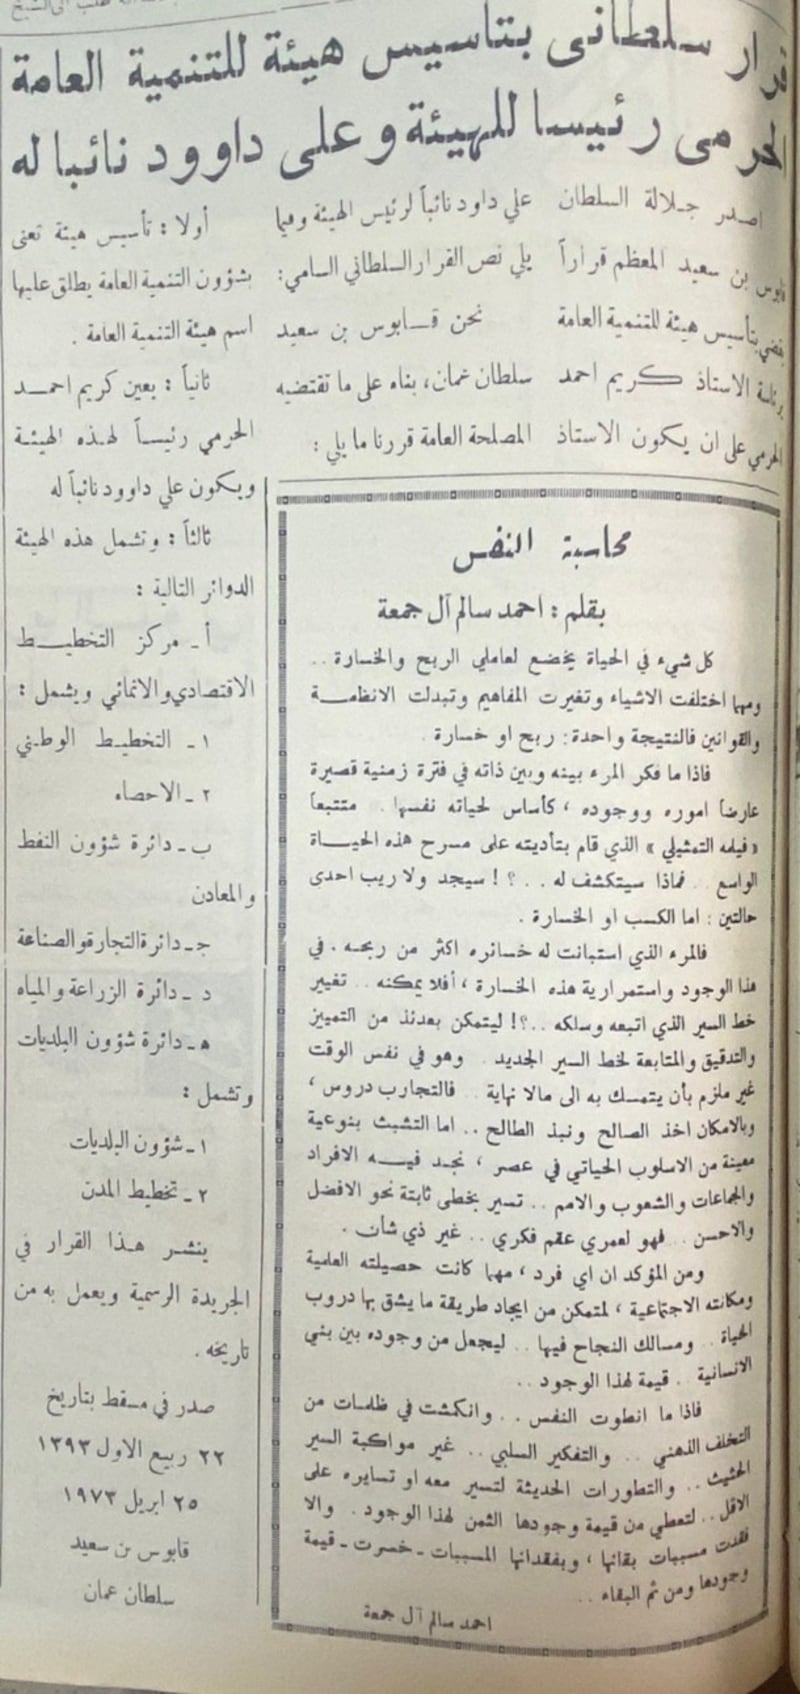 قرار سلطاني بتأسيس هيئة للتنمية العامة
الحرمى رئيسا للهيئة وعلى داوود نائبا له
اصدر جلالة السلطان
قابوس بن سعيد المعظم قراراً
يقضي بتأسيس هيئة للتنمية العامة
برئاسة الاستاذ كريم احمد
الحرمي على ان يكون الاستاذ
علي داود نائباً لرئيس الهيئة وفيا
يلي نص القرار السلطاني السامي:
نحن قابوس بن سعيد
سلطان عمان، بناه على ما تقتضيه
المصلحة العامة قررنا ما يلي :
أولا : تأسيس هيئة تعنى
بشؤون التنمية العامة يطلق عليها
اسم هيئة التنمية العامة .
ثانياً : يعين كريم احمد
الحرمي رئيساً لهذه الهيئة
ويكون علي داوود نائباً له
ثالثاً : وتشمل هذه الهيئة
الدوائر التالية :
أ ـ مركز التخطيط
الاقتصادي والانمائي ويشمل :
١ ـ التخطيط الوطني
٢ ـ الاحصاء
ب ـ دائرة شؤون النفط
والمعادن
جـ ـ دائرة التجارة والصناعة
د ـ دائرة الزراعة والمياه
هـ ـ دائرة شؤون البلديات
وتشمل :
١ ـ شؤون البلديات
٢ ـ تخطيط المدن
ينشر هذا القرار في
الجريدة الرسمية ويعمل به من
تاريخه .
صدر في مسقط بتاريخ
٢٢ ربيع الاول ١٣٩٣
٢٥ ابريل ١٩٧٣
قابوس بن سعيد
سلطان عمان
محاسبة النفس
بقلم : احمد سالم آل جمعة
كل شيء في الحياة يخضع لعاملي الربح والخسارة ..
ومهما اختلفت الاشياء وتغيرت المفاهيم وتبدلت الانظمة
والقوانين فالنتيجة واحدة: ربح او خسارة .
فاذا ما فكر المرء بينه وبين ذاته في فترة زمنية قصيرة
عارضاً اموره ووجوده ، كأساس لحياته نفسها . متتبعاً
« فيلمه التمثيلي » الذي قام بتأديته على مسرح هذه الحياة
الواسع .. فماذا سيتكشف له .. ؟ ! سيجد ولا ريب احدى
حالتين : اما الكسب او الخسارة .
فالمرء الذي استبانت له خسائره اكثر من ربحه . في
هذا الوجود واستمرارية هذه الخسارة ، أفلا يمكنه .. تغيير
خط السير الذي اتبعه وسلكه ..؟! ليتمكن بعدئذ من التمييز
والتدقيق والمتابعة لخط السير الجديد .. وهو في نفس الوقت
غير ملزم بأن يتمسك به الى مالا نهاية .. فالتجارب دروس ،
وبالامكان اخذ الصالح ونبذ الطالح .. اما التشبث بنوعية
معينة من الاسلوب الحياتي في عصر ، نجد فيه الافراد
والجماعات والشعوب والامم .. تسير بخطى ثابتة نحو الافضل
والاحسن .. فهو لعمري عقم فكري .. غير ذي شأن .
ومن المؤكد ان اي فرد ، مهما كانت حصيلته العلمية
ومكانته الاجتماعية ، لمتمكن من ايجاد طريقة ما يشق بها دروب
الحياة .. ومسالك النجاح فيها .. ليجعل من وجوده بين بني
الانسانية .. قيمة لهذا الوجود ..
فاذا ما انطوت النفس .. وانكمشت في ظلمات من
التخلف الذهني .. والتفكير السلبي .. غير مواكبة السير
الحثيث .. والتطورات الحديثة لتسير معه او تسايره على
الاقل .. لتعطي من قيمة وجودها الثمن لهذا الوجود . والا
فقدت مسببات بقائها ، وبفقدانها المسببات ـ خسرت ـ قيمة
وجودها ومن ثم البقاء ..
احمد سالم آل جمعة